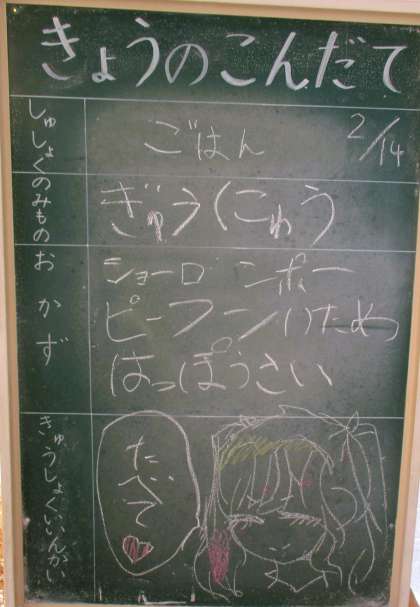 きょうのこんだて
しゅしょく
ごはん
2/14
のみもの
ぎゅうにゅう
おかず
ショーロンポー
ビーフンいため
はっぽうさい
きゅうしょくいいんかい
たべて